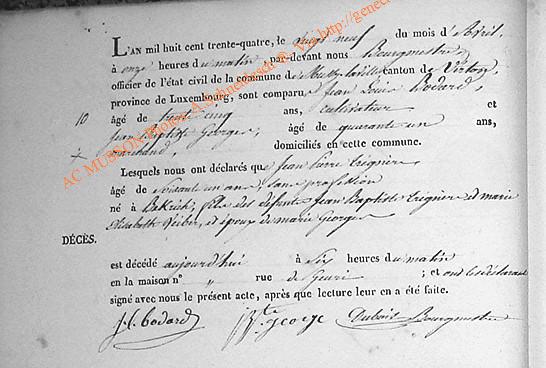 L'AN mil huit cent trente-quatre, le vingt neuf du mois d'Avril,
à onze heures du matin, par-devant nous Bourgmestre
officier de l'état civil de la commune de Mussy-la-ville canton de Virton,
province de Luxembourg, sont comparu Jean Louis Bodard,
10 âgé de trente cinq ans, cultivateur et
Jean Baptiste Georges, âgé de quarante un ans,
marchand, domiciliés en cette commune.
Lesquels nous ont déclarés que Jean Pierre
âgé de soixante un ans, sans profession
né à fils des défunts Jean Baptiste et marie
Elisabeth et époux de marie Georges
DÉCÈS.
est décédé aujourd'hui à Six heures du matin
en la maison n° „ rue de ; et ont les déclarant
signé avec nous le présent acte, après que lecture leur en a été faite.
J. L. bodard george Dubois Bourgmestre
AC MUSSON Photos A. Schneidesch R. V. http://genec